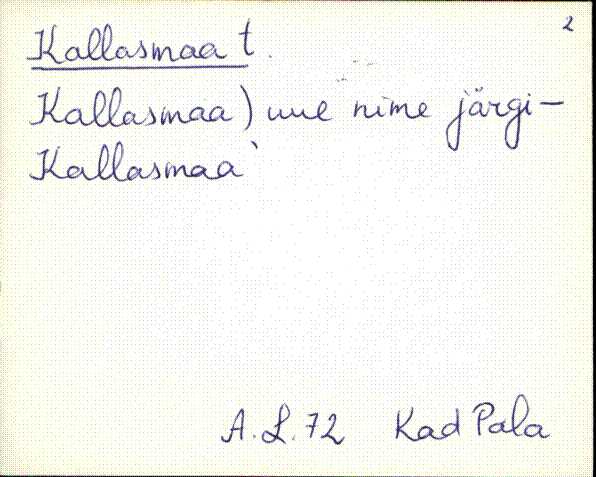 2
Kallasmaa t.
Kallasmaa) uue nime järgi –
Kallasmaa`
A.L.72 Kad Pala